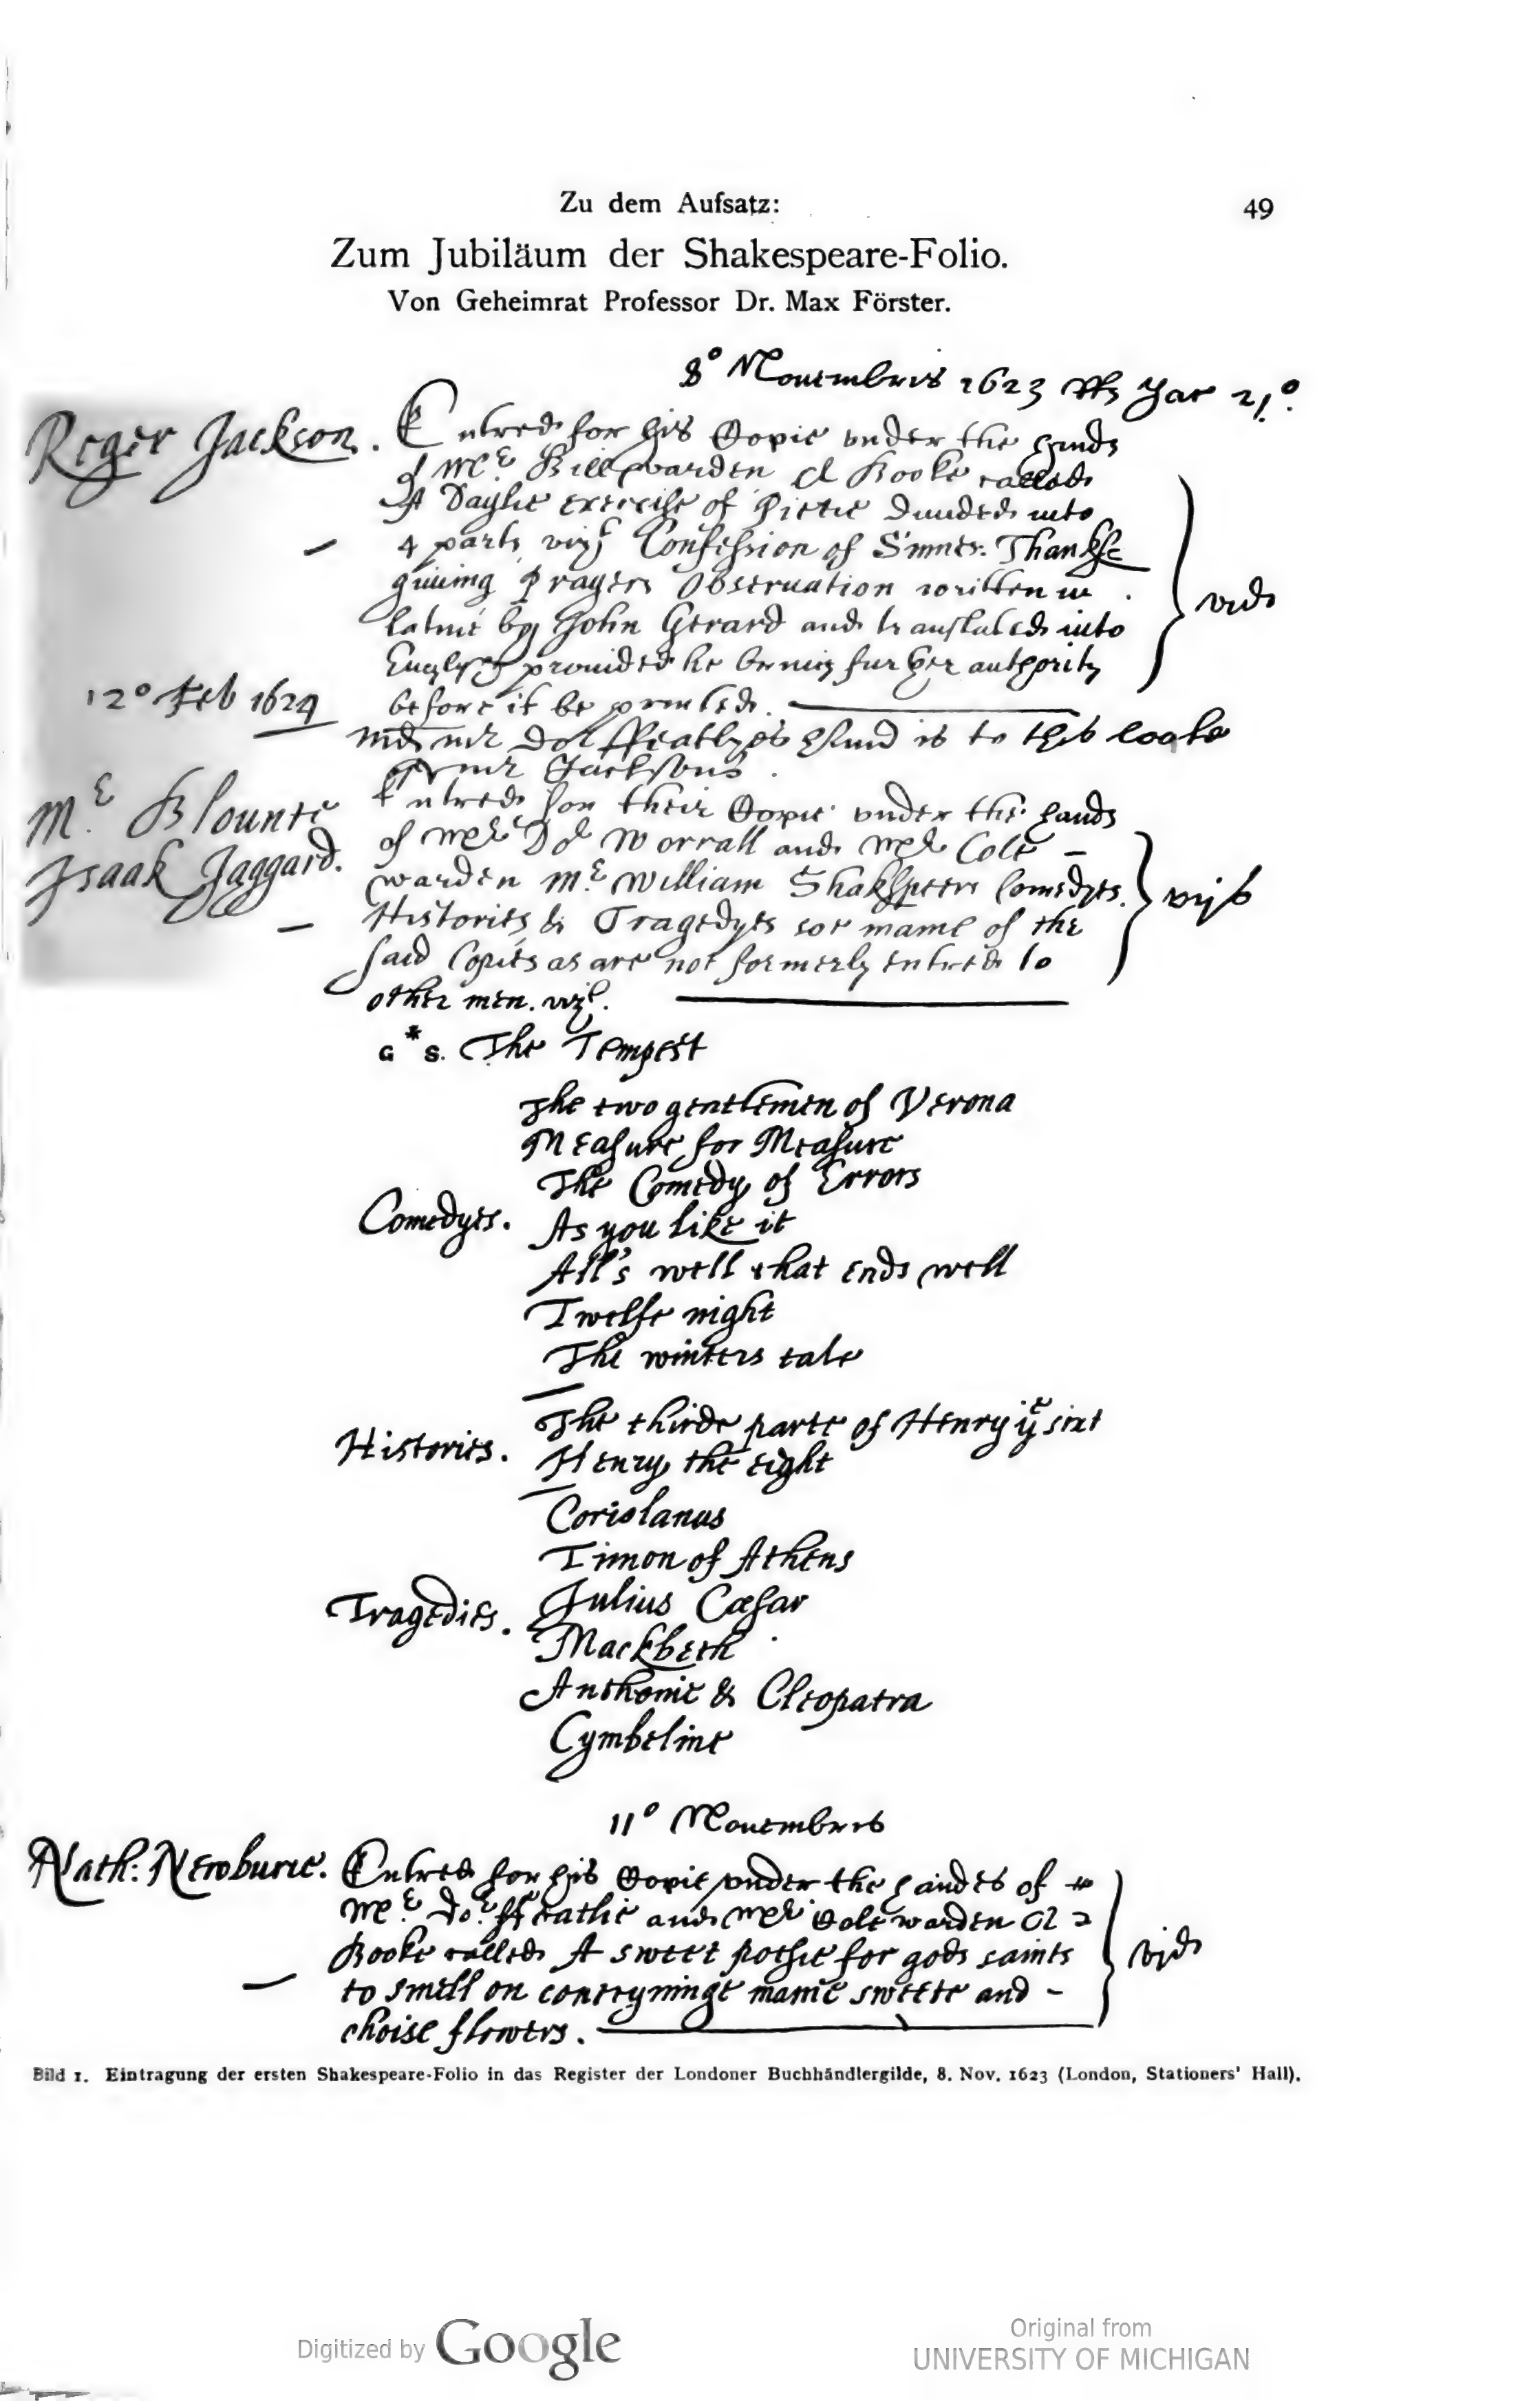 Zu dem Aufsatz:
49
Zum Jubiläum der Shakespeare-Folio.
Von Geheimrat Professor Dr. Max Förster.
8° Nouembris 1623 Rs Jac 21°.
Roger Jackson.
Entred for his Copie vnder the hands
of Mr. Bill warden A Booke called
A Daylie exercise of Pietie diuided into
4 parts vizt Confession of Sinnes. Thankse
giuing Prayers Obseruation written in
latine by John Gerard and translated into
Englysh prouided he bring further authority
before it be printed.
vid
12° Feb 1624
Md mr Doc ffeatlyes hand is to this booke
of mr Jacksons
Mr. Blounte
Isaak Jaggard.
Entred for their Copie vnder the hands
of Mr Do Worrall and Mr Cole –
warden Mr. William Shakspeers Comedyes
Histories & Tragedyes soe manie of the
said Copies as are not formerly entred to
other men. vizt.
vijs
G * S. The Tempest
The two gentlemen of Verona
Measure for Measure
The Comedy of Errors
Comedyes.
As you like it
All's well that ends well
Twelfe night
The winters tale
Histories.
The thirde parte of Henry ye sixt
Henry the eight
Coriolanus
Timon of Athens
Tragedies.
Julius Cæsar
Mackbeth
Anthonie & Cleopatra
Cymbeline
11° Nouembris
Nath: Newburie.
Entred for his Copie vnder the handes of
Mr. Do. ffeatlie and Mr Cole warden A
Booke called A sweet posie for gods saints
to smell on conteyninge manie sweete and –
choise flowers.
vjd
Bild 1. Eintragung der ersten Shakespeare-Folio in das Register der Londoner Buchhändlergilde, 8. Nov. 1623 (London, Stationers' Hall).
Digitized by Google
Original from
UNIVERSITY OF MICHIGAN